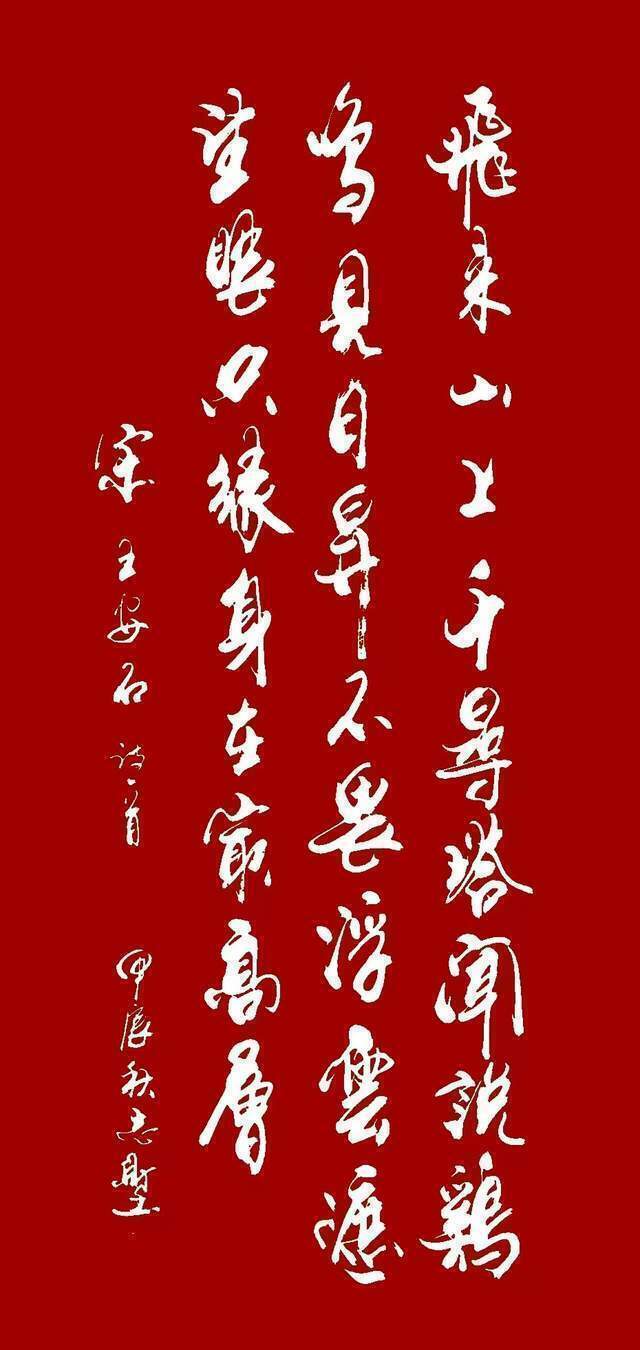 飛来山上千尋塔聞説鷄
鳴見日昇不畏浮雲遮
望眼只緣身在最高層
宋王安石詩一首 甲辰秋志堅